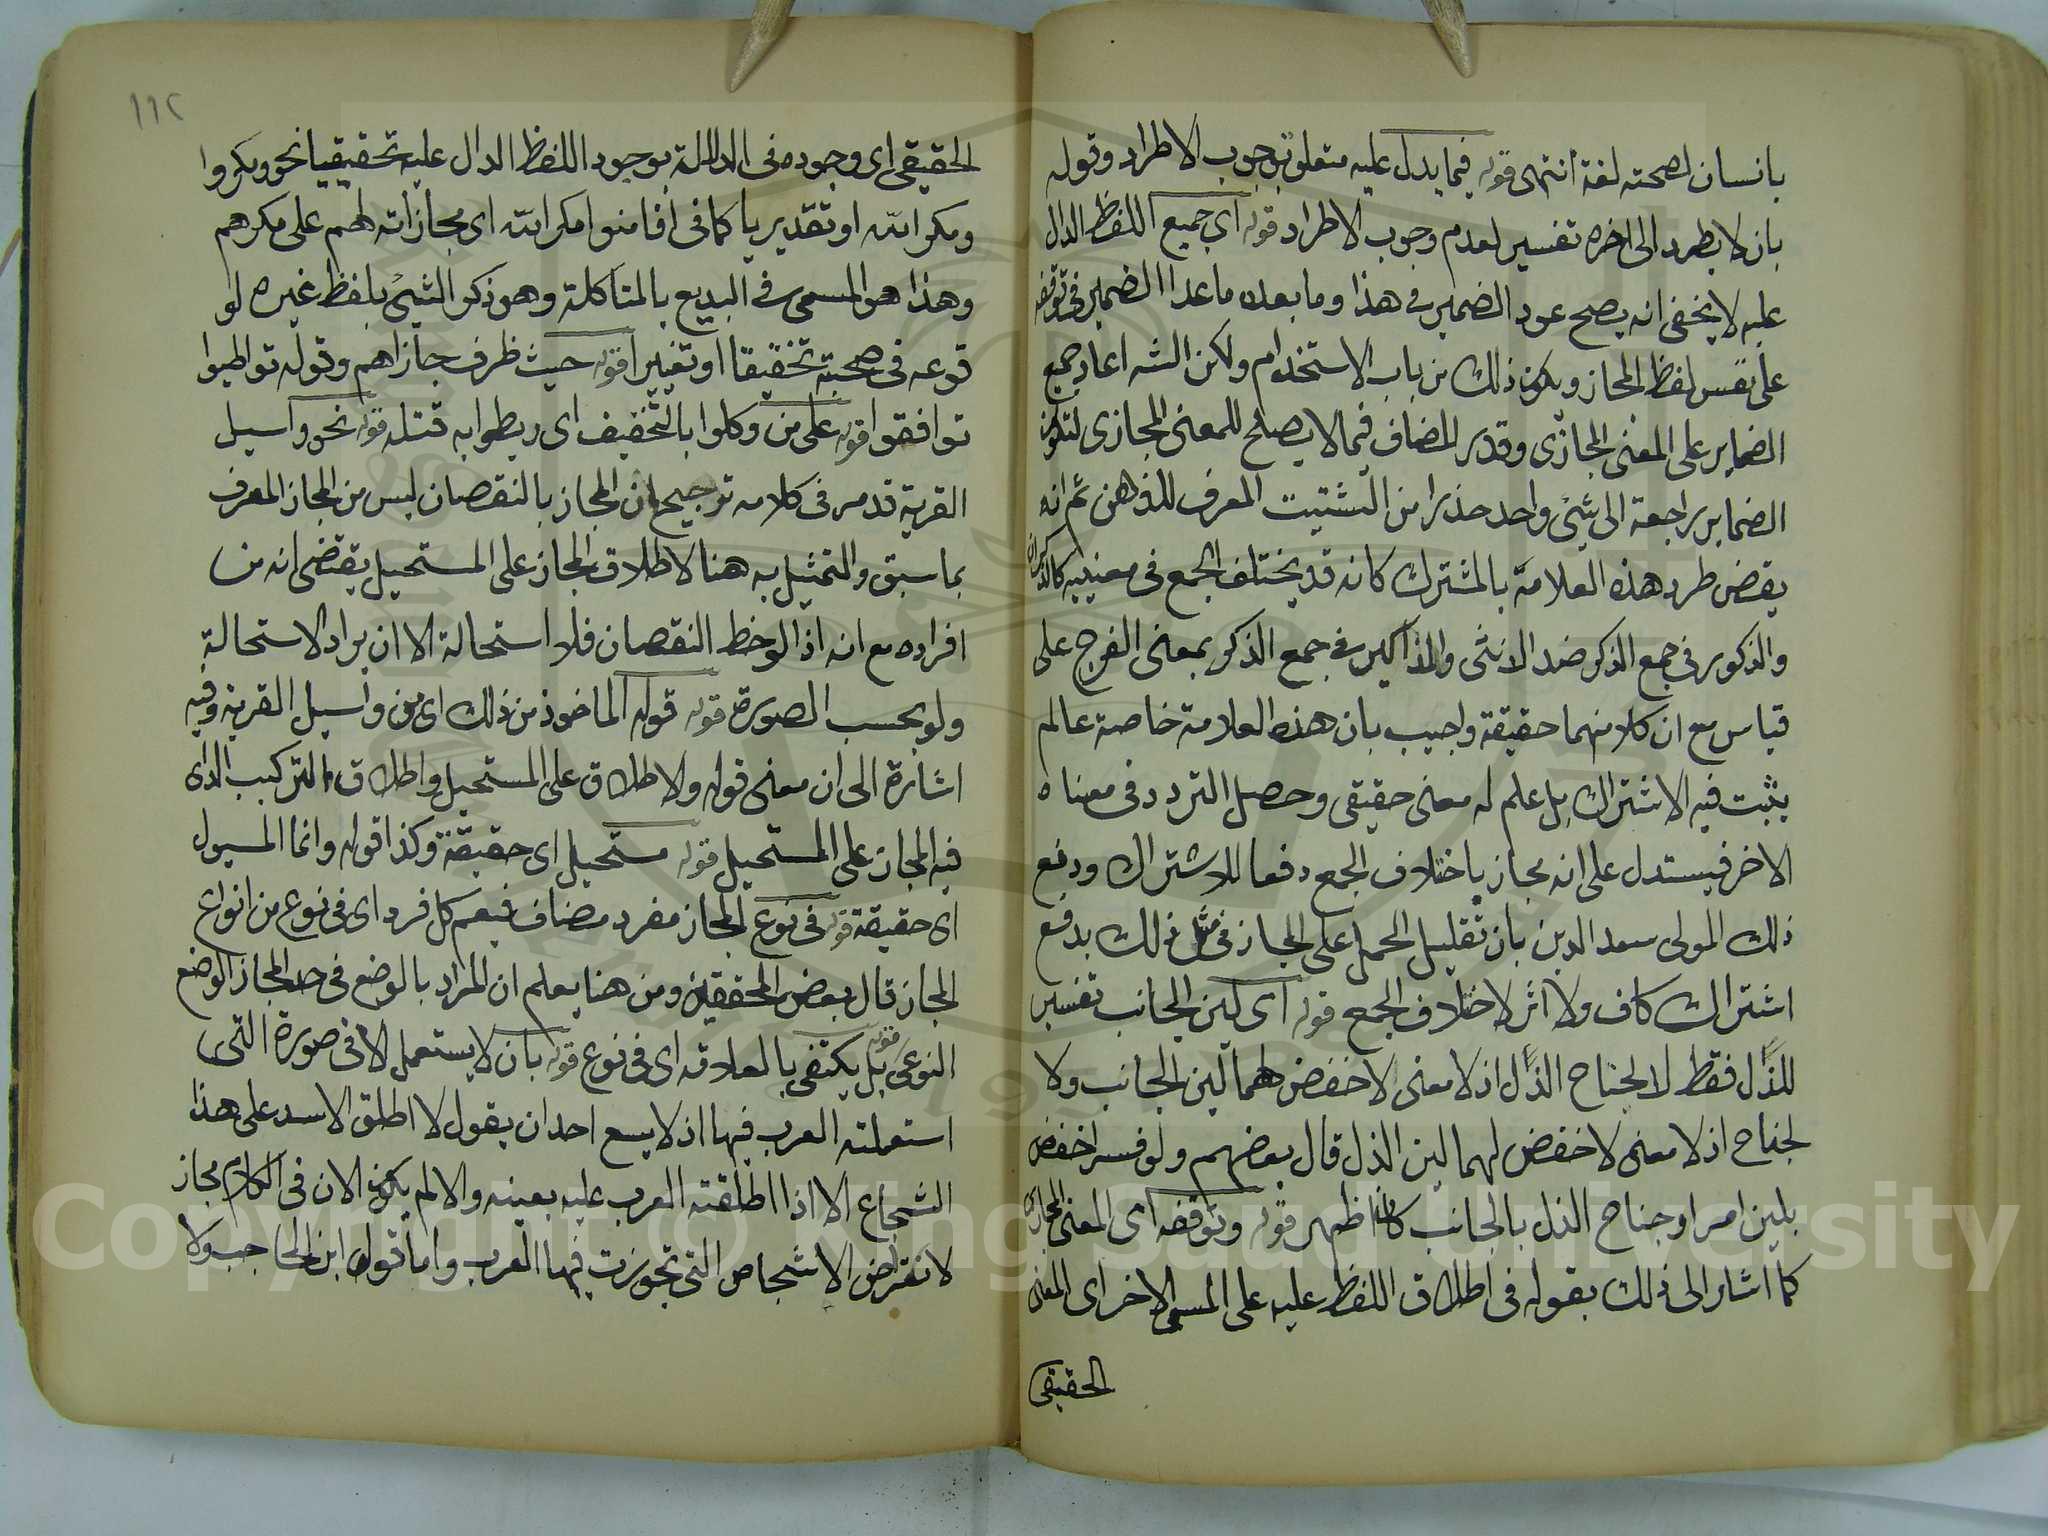 بانسان لصحته لغة انتهى قوله فيما يدل عليه متعلق بوجوب الاطراد وقوله
بان لا يطرد الى اخره تفسير لعدم وجوب الاطراد قوله اى جميع اللفظ الدال
عليه لا يخفى انه يصح عود الضمير فى هذا وما بعده ما عدا الضمير فى توقفه
على نفس لفظ المجاز ويكون ذلك من باب الاستخدام ولكن الشه اعاد جميع
الضماير على المعنى المجازى وقدر المضاف فيما لا يصلح للمعنى المجازى لتكون
الضماير راجعة الى شئ واحد حذرا من التشتيت المعرف للذهن ثم انه
يقض طرد هذه العلامة بالمشترك كانه قد يختلف الجمع فى معنييه كالذكران
والذكور فى جمع الذكر ضد الانثى والمذاكير فى جمع الذكر بمعنى الفرج على
قياس مع ان كلا منهما حقيقة واجيب بان هذه العلامة خاصة عالم
يثبت فيه الاشتراك بل علم له معنى حقيقى وحصل التردد فى معناه
الاخر فيستدل على انه مجاز باختلاف الجمع دفعا للاشتراك ودفع
ذلك المولى سعد الدين بان تقليل الحمل على المجاز فى مثل ذلك بدفع
اشتراك كاف ولا اثر لاختلاف الجمع قوله اى لين الجانب تفسير
للذل فقط لا لجناح الذل اذ لا معنى لاخفض لهما لين الجانب ولا
لجناح اذ لا معنى لاخفض لهما لين الذل قال بعضهم ولو فسر اخفض
بلين امر او جناح الذل بالجانب كان اظهر قوله وتوقفه اى المعنى المجازى
كما اشار الى ذلك بقوله فى اطلاق اللفظ عليه على المسمى الاخر اى المعنى
الحقيقى
١١٢
الحقيقى اى وجوده فى الدلالة بوجود اللفظ الدال عليه تحقيقيا نحو ومكروا
ومكر الله او تقديريا كما فى افامنوا مكر الله اى مجازاته لهم على مكرهم
وهذا هو المسمى فى البديع بالمشاكلة وهو ذكر الشئ بلفظ غيره لو
قوعه فى صحبته تحقيقا او تغييرا قوله حيث ظرف جازاهم وقوله تواطيوا
توافقوا قوله على من وكلوا بالتخفيف اى ربطوا به قتله قوله نحو واسيل
القرية قد مر فى كلامه توجيح بان المجاز بالنقصان ليس من المجاز المعرف
بما سبق والتمثيل به هنا لاطلاق المجاز على المستحيل يقتضى انه من
افراده مع انه اذا لوحظ النقصان فلا استحالة الا ان يراد الاستحالة
ولو بحسب الصورة قوله قوله الماخوذ من ذلك اى من واسيل القرية وفيه
اشارة الى ان معنى قوله ولاطلاق على المستحيل واطلاق التركيب الداى
فيه المجاز على المستحيل قوله مستحيل اى حقيقة وكذا قوله وانما المسيول
اى حقيقة قوله فى نوع المجاز مفرد مضاف فيعم كل فرد اى فى نوع من انواع
المجاز قال بعض المحققين ومن هنا يعلم ان المراد بالوضع فى حد المجاز الوضع
النوعى قوله بل يكتفى بالعلاقه اى فى نوع قوله بان لا يستعمل الا فى صورة التى
استعملته العرب فيها اذ لا يسع احد ان يقول لا اطلق الاسد على هذا
الشجاع الا اذا اطلقته العرب عليه بعينه والا لم يكون الان فى الكلام مجاز
لانقراض الاشخاص التى تجوزت فيها العرب واما قوله ابن الحاجب ولا